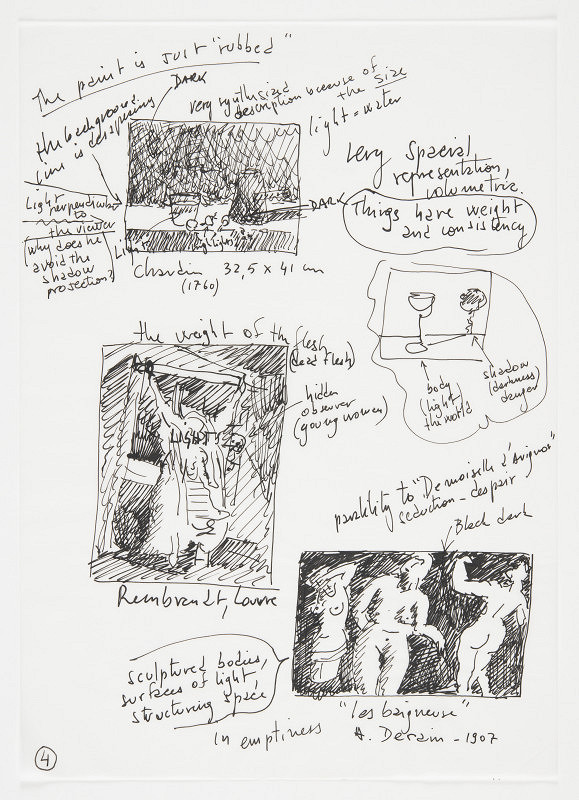 The paint is just "rubbed"
DARK
very synthesized
description because of
the size
light = water
the background
line is desapearing
Very Spacial
representation,
volumetric.
Things have weight
and consistency
Light perpendicular
to
the viewer
why does he
avoid the
shadow
projection?
DARK
Light
highlights
Chardin 32,5 x 41 cm
(1760)
body
(light)
the world
shadow
(darkness)
danger
the weight of the flesh
(dead flesh)
hidden
observer
(young women)
LIGHT!
Rembrandt, Louvre
parallity to "Demoiselle d'Avignon"
seduction - despair
Black dark
sculptured bodies,
surfaces of light,
structuring space
in emptiness
"les baigneuse"
A. Derain - 1907
4